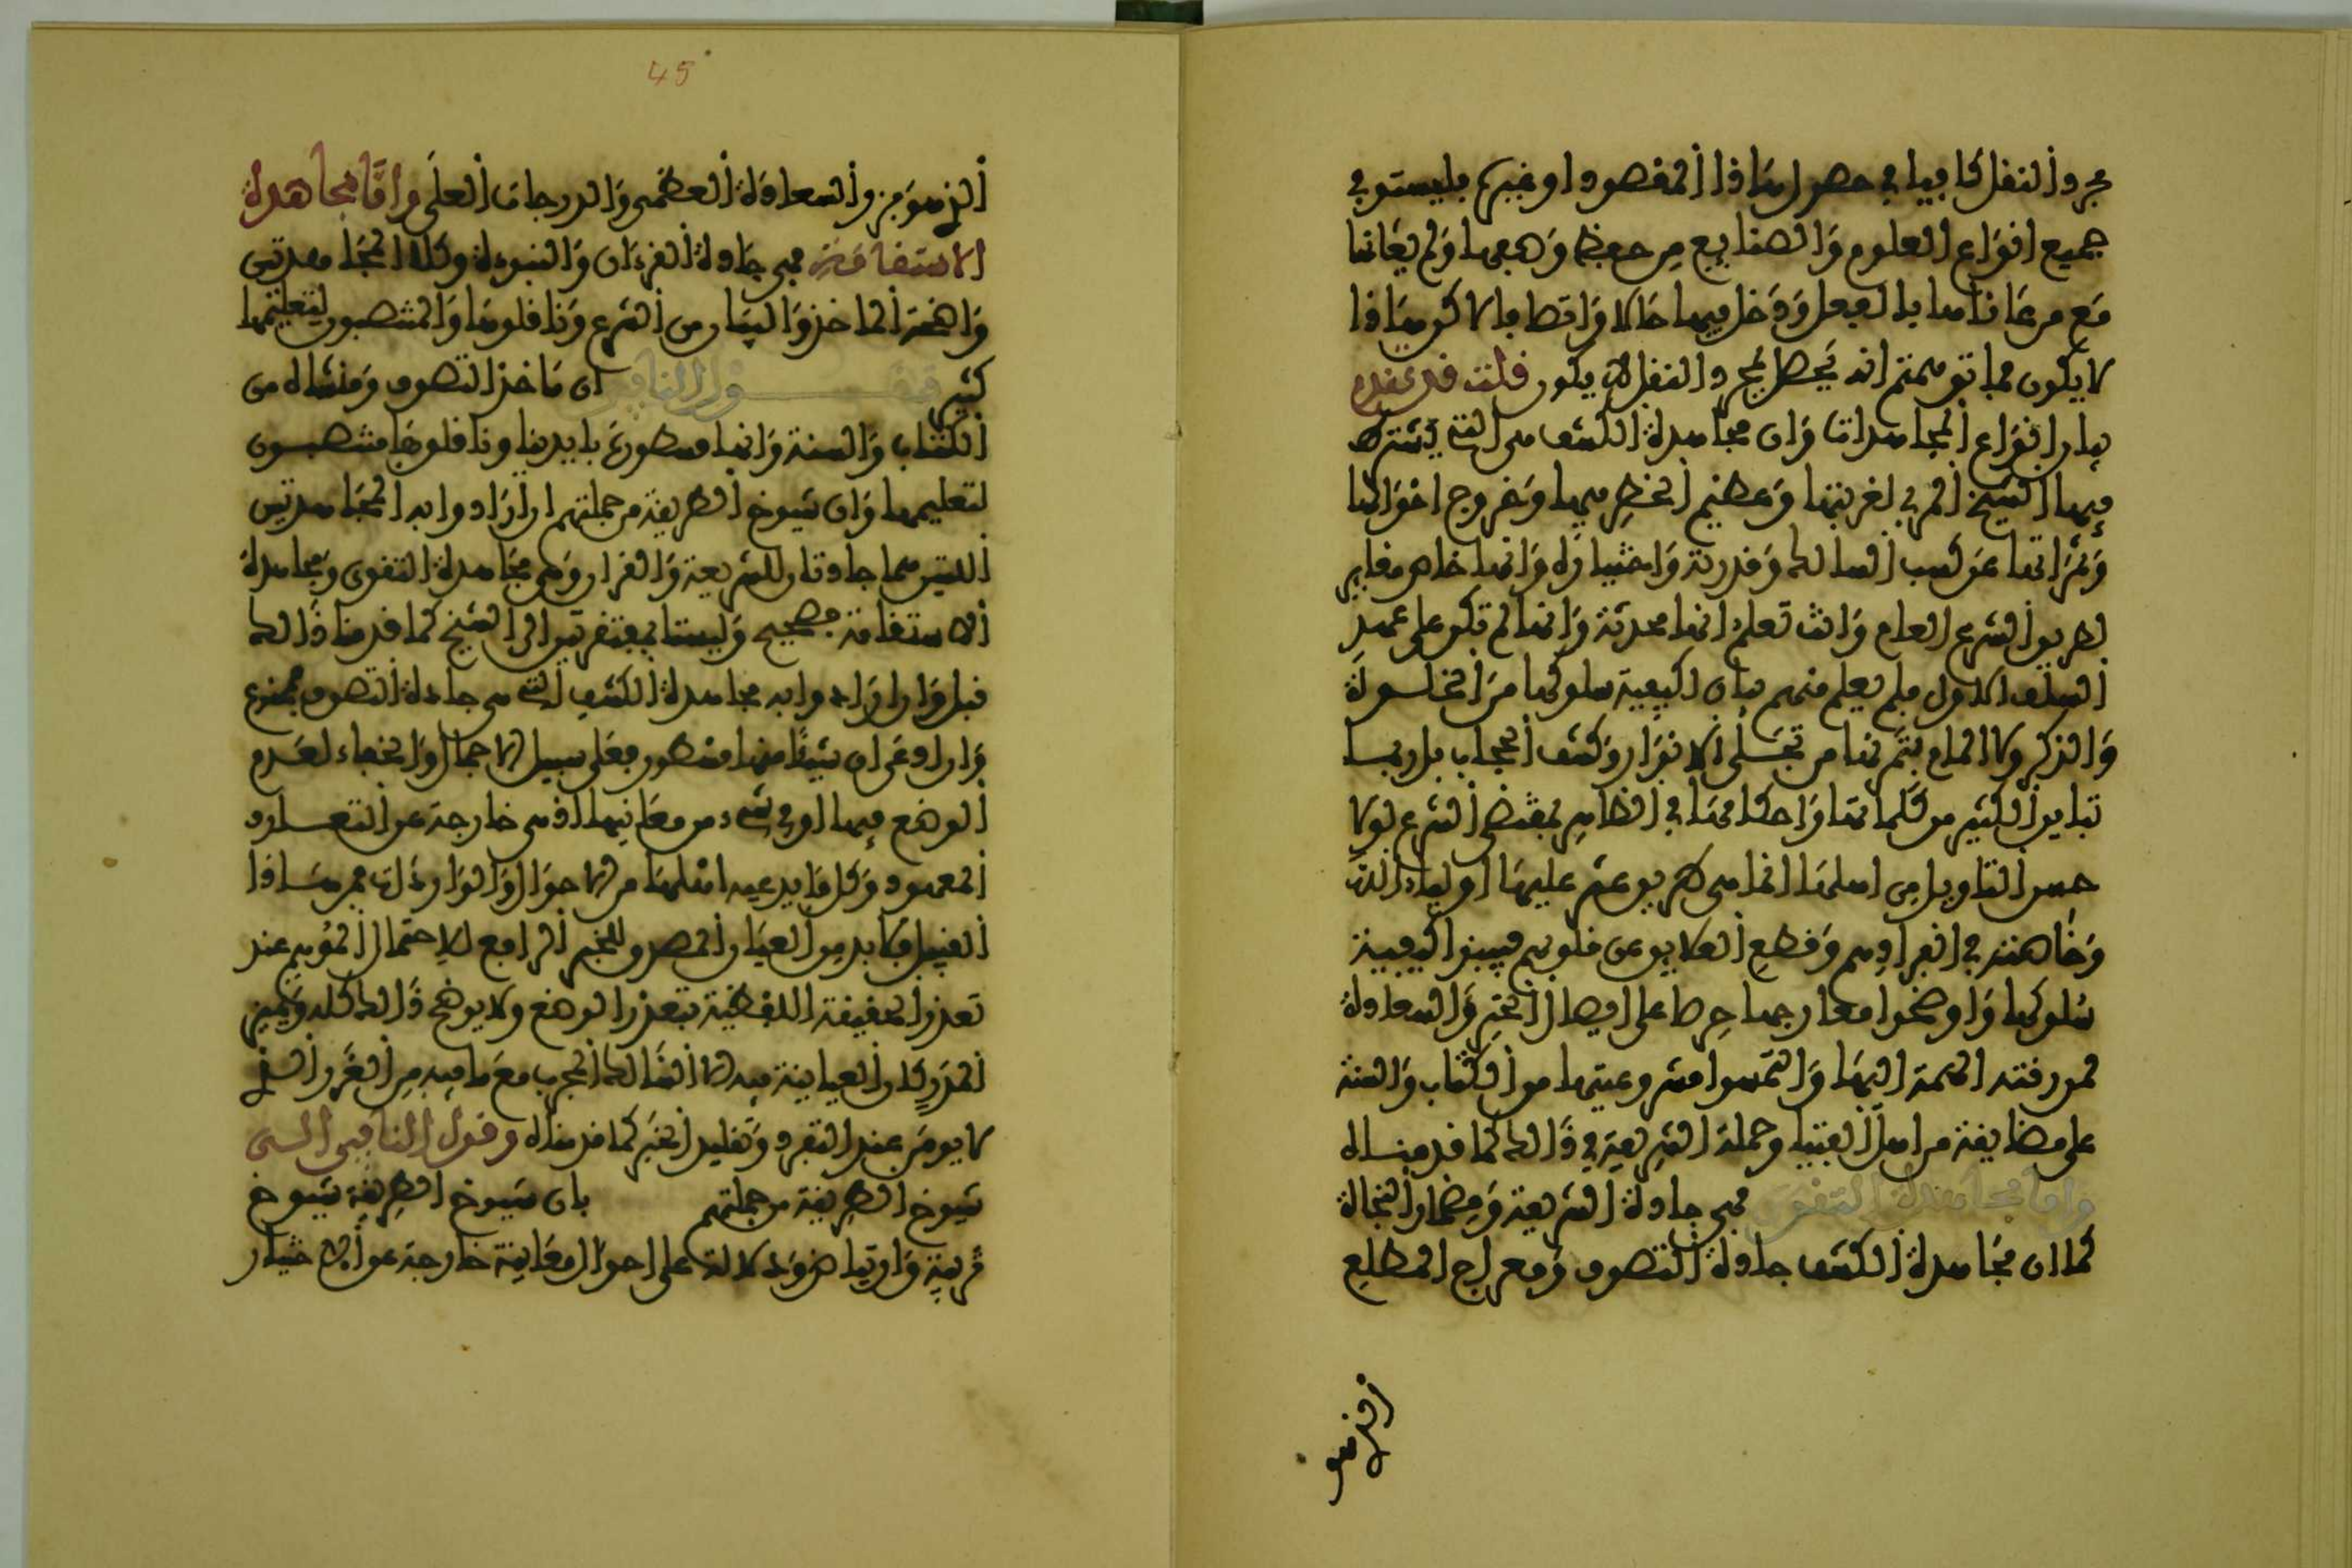 مجرد النقل كافيا في حصر هذا المقصود او غيره فليستو في
جميع انواع العلوم والصنايع من حفظها وفهمها ولم يعانها
مع من عاناها بالفعل ودخل فيها حالا واتصافا لاكن هذا
لا يكون فما توهمتم انه يحصل بمجرد النقل لا يكون قلت قد تقدم
بيان انواع المجاهدات وان مجاهدة الكشف هي التي يشترط
فيها الشيخ المربي لغربتها وعظيم الخطر فيها وخروج احوالها
وثمراتها عن كسب السالك وقدرته واختياره وانها خاصة مغاير
لطريق الشرع العام وانت تعلم انها محدثة وانها لم تكن على عهد
السلف الاول فلم يعلم منهم بيان لكيفية سلوكها من الخلوة
والذكر ولا الماع بثمرتها من تجلي الانوار وكشف الحجاب بل ربما
تباين الكثير من كلماتها واحكامها في الظاهر لمقتضى الشرع لولا
حسن التاويل من اهلها انما هي طريق عثر عليها اولياء الله
وخاصته في انفرادهم وقطع العلايق عن قلوبهم فبينوا كيفية
سلوكها واوضحوا معارجها حرصا على ايصال الخير والسعادة
لمن رقته الهمة اليها والتمسوا مشروعيتها من الكتاب والسنة
على مضايقة من اهل الفتيا وحملة الشريعة في ذالك كما قدمناه
واما مجاهدة التقوى فهي جادة الشريعة ومضمار النجاة
كما ان مجاهدة الكشف جادة التصوف ومعراج المطلع
45
والسعادة العظمى والدرجات العلى واما مجاهدة
الاستقامة فهي جادة القرءان والنبوءة وكلا المجاهدتين
واضحة الماخذ والبيان من الشرع وناقلوها والمنتصبون لتعليمها
كثير ان ماخذ التصوف ومنشاه من
الكتاب والسنة وانها مسطورة بايدينا وناقلوها منتصبون
لتعليمها وان شيوخ الطريقة من جملتهم ان ارادوا به المجاهدتين
اللتين هما جادتان للشريعة والقرءان وهي مجاهدة التقوى ومجاهدة
الاستقامة فصحيح وليستا بمفتقرتين الى الشيخ كما قدمنا ذالك
قبل وان ارادوا به مجاهدة الكشف التي هي جادة التصوف فممنوع
وان ادعى ان شيئا منها مسطور فعلى سبيل الاجمال والخفاء لعدم
الوضع فيها او في شيء من معانيها اذ هي خارجة عن التعارف
المعهود وكل ما يدعيه اهلها من الاحوال والواردات فمن هاذا
القبيل فلا بد من العيان المصدق للخبر الرافع للاحتمال الموهم عند
تعذر الحقيقة اللفظية بتعذر الوضع ولا يوضح ذالك كله ويميز
المدرك ان العيانية فيه الا السالك المجرب مع ما فيه من الغرر الذي
لا يومن عند التفرد وتقليد الخبر كما قدمناه وقول النافي السي
شيوخ الطريقة من جملتهم بان شيوخ الطريقة شيوخ
تربية وارتياض ودلالة على احوال معاينة خارجة عن الاختيار